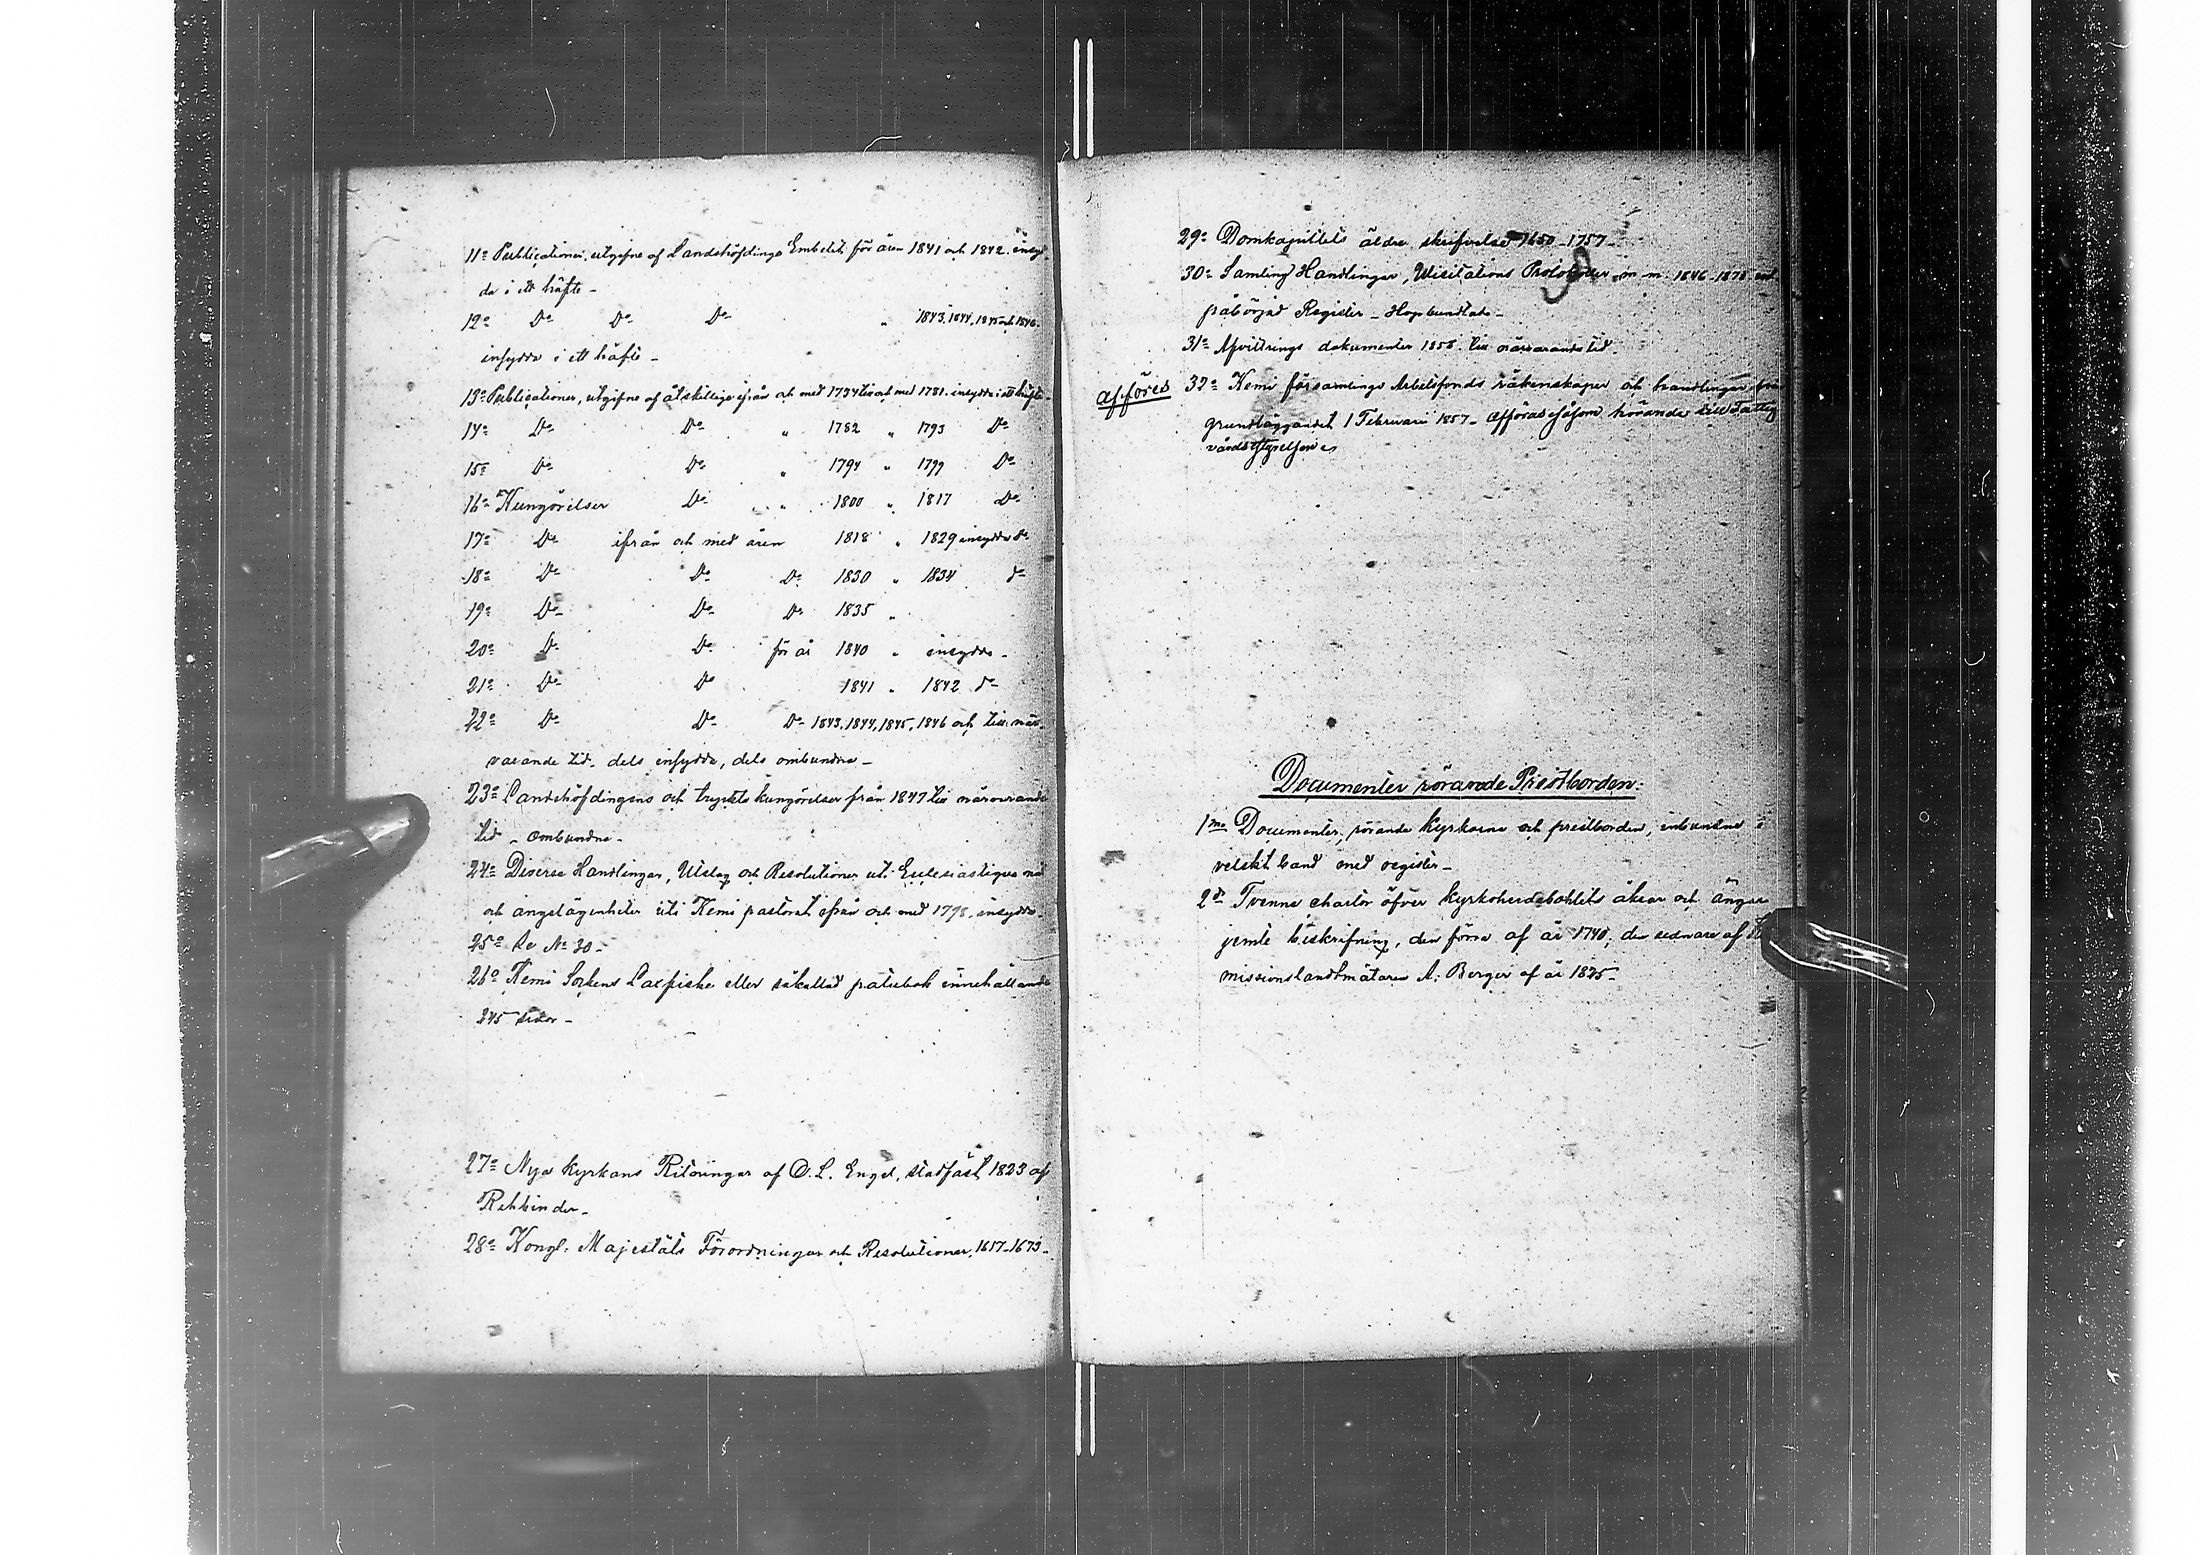 11:o Publicationer, utgifne af Landshöfdinge Embetet för åren 1841 och 1842. insyd
da i ett häfte -
12:o Do Do Do " 1843, 1844, 1845 och 1846.
insydda i ett häfte -
13:o Publicationer, utgifne af åtskillige ifrån och med 1734 till och med 1781. insydda i ett häfte -
14:o Do Do " 1782 " 1793 Do
15:o Do Do " 1794 " 1799 Do
16:o Kungörelser Do " 1800 " 1817 Do
17:o Do ifrån och med åren 1818 " 1829 insydda do
18:o Do Do Do 1830 " 1834 do
19:o Do Do Do 1835 "
20:o Do Do för år 1840 " insydda -
21:o Do Do 1841 " 1842 do
22:o Do Do Do 1843, 1844, 1845, 1846 och till när-
varande tid, dels insydda, dels ombundna -
23:o Landshöfdingens och tryckta kungörelser från 1847 till närvarande
tid - ombundna -
24:o Diverse Handlingar, Utslag och Resolutioner uti Ecclesiastique mål
och angelägenheter uti Kemi pastorat ifrån och med 1798, insydda -
25:o Se No 30 -
26:o Kemi Sockens Laxfiske eller såkallad patabok innehållande
245 sidor -
27:o Nya kyrkans Ritningar af C. L. Engel, stadfäst 1823 af
Rehbinder -
28:o Kongl: Majestäts Förordningar och Resolutioner, 1617-1673 -
29:o Domkapitlets äldre skrifvelser 1650-1757 -
30:o Samling Handlingar, Visitations Protokoller m m: 1846-1878 med
påbörjad Register - Hopbundtade -
31:o Afvittrings dokumenter 1858 till närvarande tid.
afföres 32:o Kemi församlings Arbetsfonds räkenskaper och handlingar från
grundläggandet 1 Februari 1857 - afföras såsom hörande till Fattig
vårdsstyrelsen
Documenter rörande Prestborden:
1mo Documenter, rörande kyrkorne och prestborden, inbundne i
velskt band med register -
2do Tvenne chartor öfver kyrkoherdebohlets åkrar och ängar
jemte beskrifning, den förra af år 1740, den sednare af Com
missionslandtmätaren A. Berger af år 1875 -